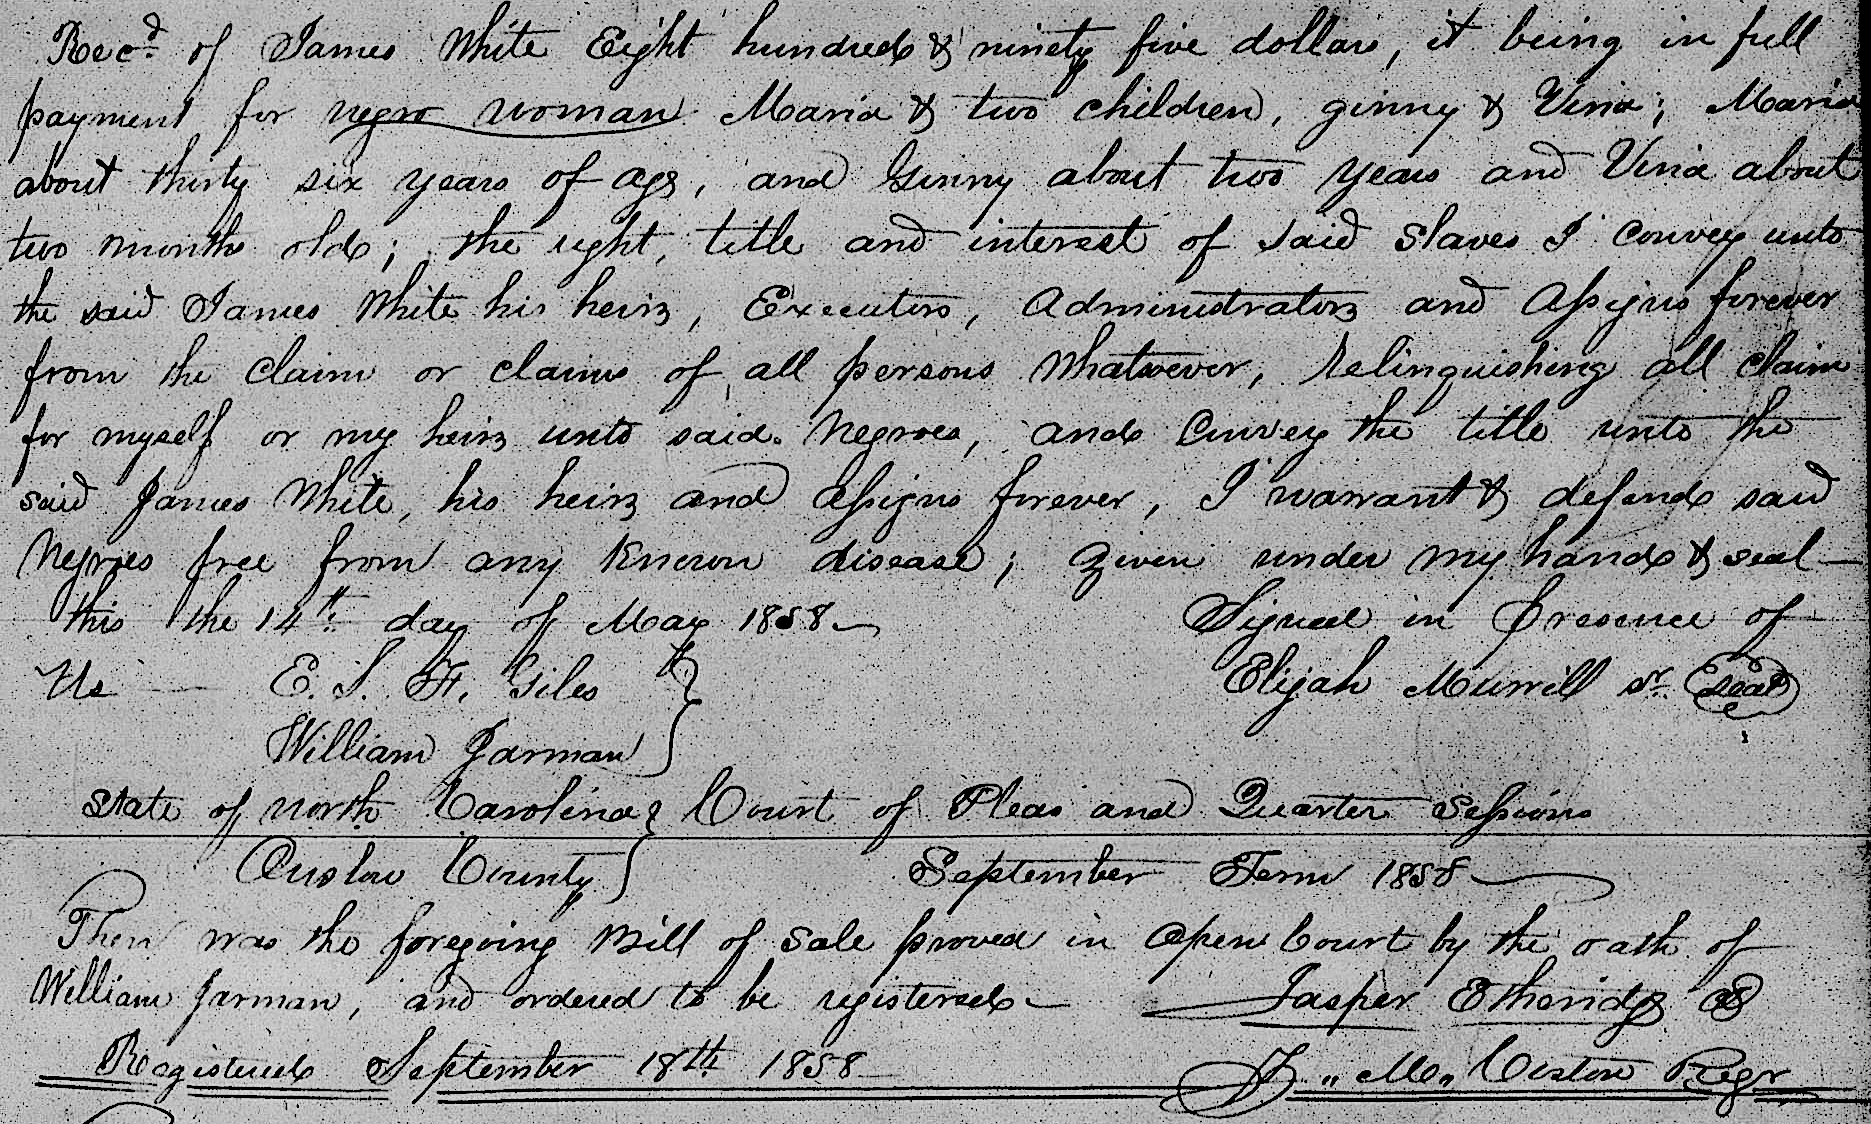 Recd. of James White Eight hundred & ninety five dollars, it being in full
payment for negro woman Maria & two children, ginny & Vina; Maria
about thirty six years of age, and Ginny about two years and Vina about
two months old; the right, title and interest of said Slaves I convey unto
the said James White his heirs, Executors, Administrators and Assigns forever
from the claim or claims of all persons whatsoever, relinquishing all claim
for myself or my heirs unto said Negroes, and Convey the title unto the
said James White, his heirs and assigns forever, I warrant & defend said
Negroes free from any Known disease; given under my hand & seal
this the 14th day of May 1858 Signed in presence of
Us E. S. F. Giles Elijah Murrill Sr. Seal
William Jarman
State of North Carolina } Court of Pleas and Quarter Sessions
Onslow County } September Term 1858
Then was the foregoing Bill of Sale proved in Open Court by the oath of
William Jarman, and ordered to be registered Jasper Etheridge
Registered September 18th 1858 M Regr